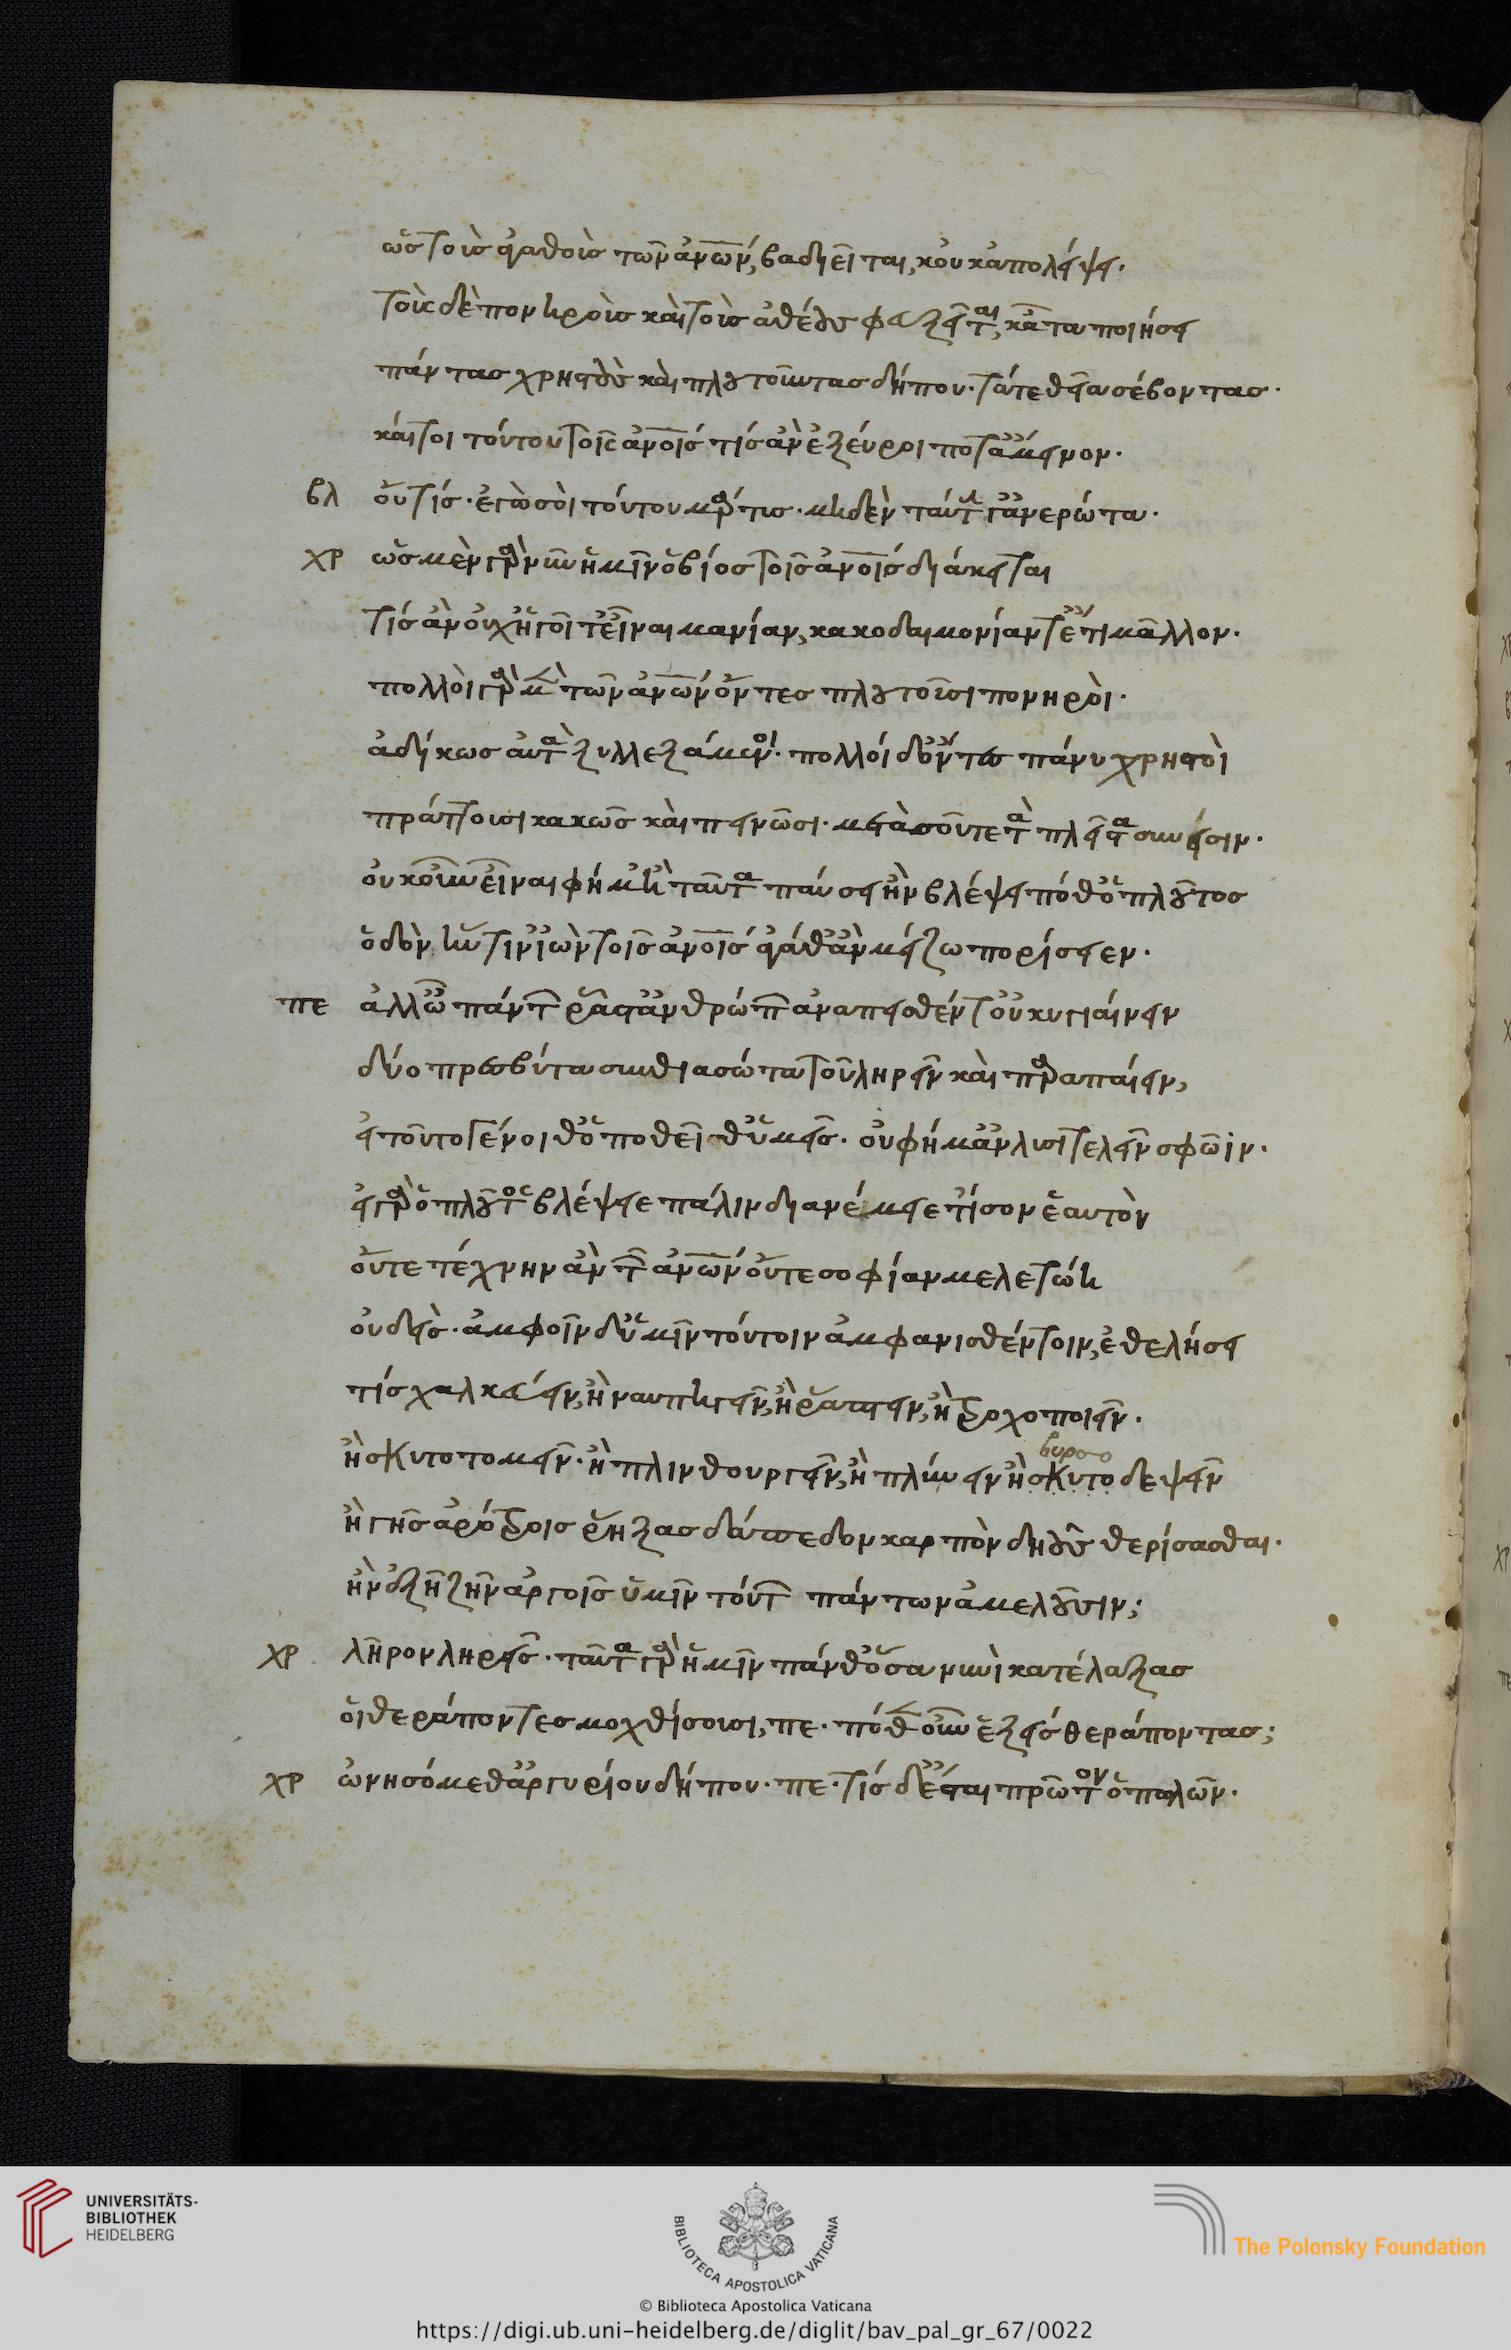 ὡς τοὶς ἀγαθοὶς τῶν ἀνων, βαδιεῖται, κοὐκ ἀπολείψει·
τοὺς δὲ πονηροὺς καὶ τοὺς ἀθέους φευξεῖται, κᾆτα ποιήσει
πάντας χρηστοὺς καὶ πλουτοῦντας δήπου· τά τε θεῖα σέβοντας·
καίτοι τούτου τοῖς ἀνοις τίς ἂν ἐξεύροι ποτ' ἄμεινον·
βλ οὔτις· ἐγὼ σοὶ τούτου μάρτυς· μηδὲν ταύτην γ' ἀνερώτα·
χρ ὡς μὲν γὰρ νῦν ἡμῖν ὁ βίος τοῖς ἀνοις διάκειται
τίς ἂν οὐχ ἡγοῖτ' εἶναι μανίαν, κακοδαιμονίαν τ' ἔτι μᾶλλον·
πολλοὶ γὰρ μὲν τῶν ἀνων ὄντες πλουτοῦσι πονηροὶ·
ἀδίκως αὐτὰ ξυλλεξάμενοι· πολλοί δ' ὄντες πάνυ χρηστοὶ
πράττουσι κακῶς καὶ πεινῶσι· μετὰ σοῦ τε τὰ πλεῖστα σύνεισιν·
οὐκοῦν εἶναι φήμ' ἢ ταῦτα παύσει ἢν βλέψει πόθ' ὁ πλοῦτος
ὁδὸν ἥντιν' ἰὼν τοῖς ἀνοις ἀγάθ' ἂν μείζω πορίσειεν·
πε ἀλλ' ὦ πάντων ῥᾶστ' ἀνθρώπων ἀναπεισθέντ' οὐχ υγιαίνειν
δύο πρεσβύτα συνθιασώτα τοῦ ληρεῖν καὶ παραπαίειν,
εἰ τοῦτο γένοιθ' ὃ ποθεῖθ' ὑμεῖς· οὐ φήμ' ἂν λυσιτελεῖν σφῶϊν·
εἰ γὰρ ὁ πλοῦτος βλέψειε πάλιν διανέμειέ τ' ἴσον ἑαυτὸν
οὔτε τέχνην ἂν τῶν ἀνων οὔτε σοφίαν μελετώη
οὐδεὶς· ἀμφοῖν δ' ὑμῖν τούτοιν ἀμφανισθέντοιν, ἐθελήσει
τίς χαλκεύειν, ἢ ναυπηγεῖν, ἢ ῥάπτειν, ἢ τροχοποιεῖν·
ἢ σκυτοτομεῖν· ἢ πλινθουργεῖν, ἢ πλύνειν ἢ σκυτοδεψεῖν
βυρσο
ἢ γῆς ἀρότροις ῥήξας δάπεδον καρπὸν δηοῦς θερίσασθαι·
ἢν ἐξῆ ζῆν ἀργοῖς ὑμῖν τούτων πάντων ἀμελοῦσιν;
χρ λῆρον ληρεῖς· ταῦτα γὰρ ἡμῖν πάνθ' ὅσα νυνὶ κατέλεξας
οἱ θεράποντες μοχθήσουσι, πε· πόθεν οὖν ἕξεις θεράποντας;
χρ ὠνησόμεθ' ἀργυρίου δήπου· πε· τίς δ' ἔσται πρῶτον ὁ πωλῶν·
UNIVERSITÄTS-
BIBLIOTHEK
HEIDELBERG
BIBLIOTECA APOSTOLICA VATICANA
The Polonsky Foundation
© Biblioteca Apostolica Vaticana
https://digi.ub.uni-heidelberg.de/diglit/bav_pal_gr_67/0022